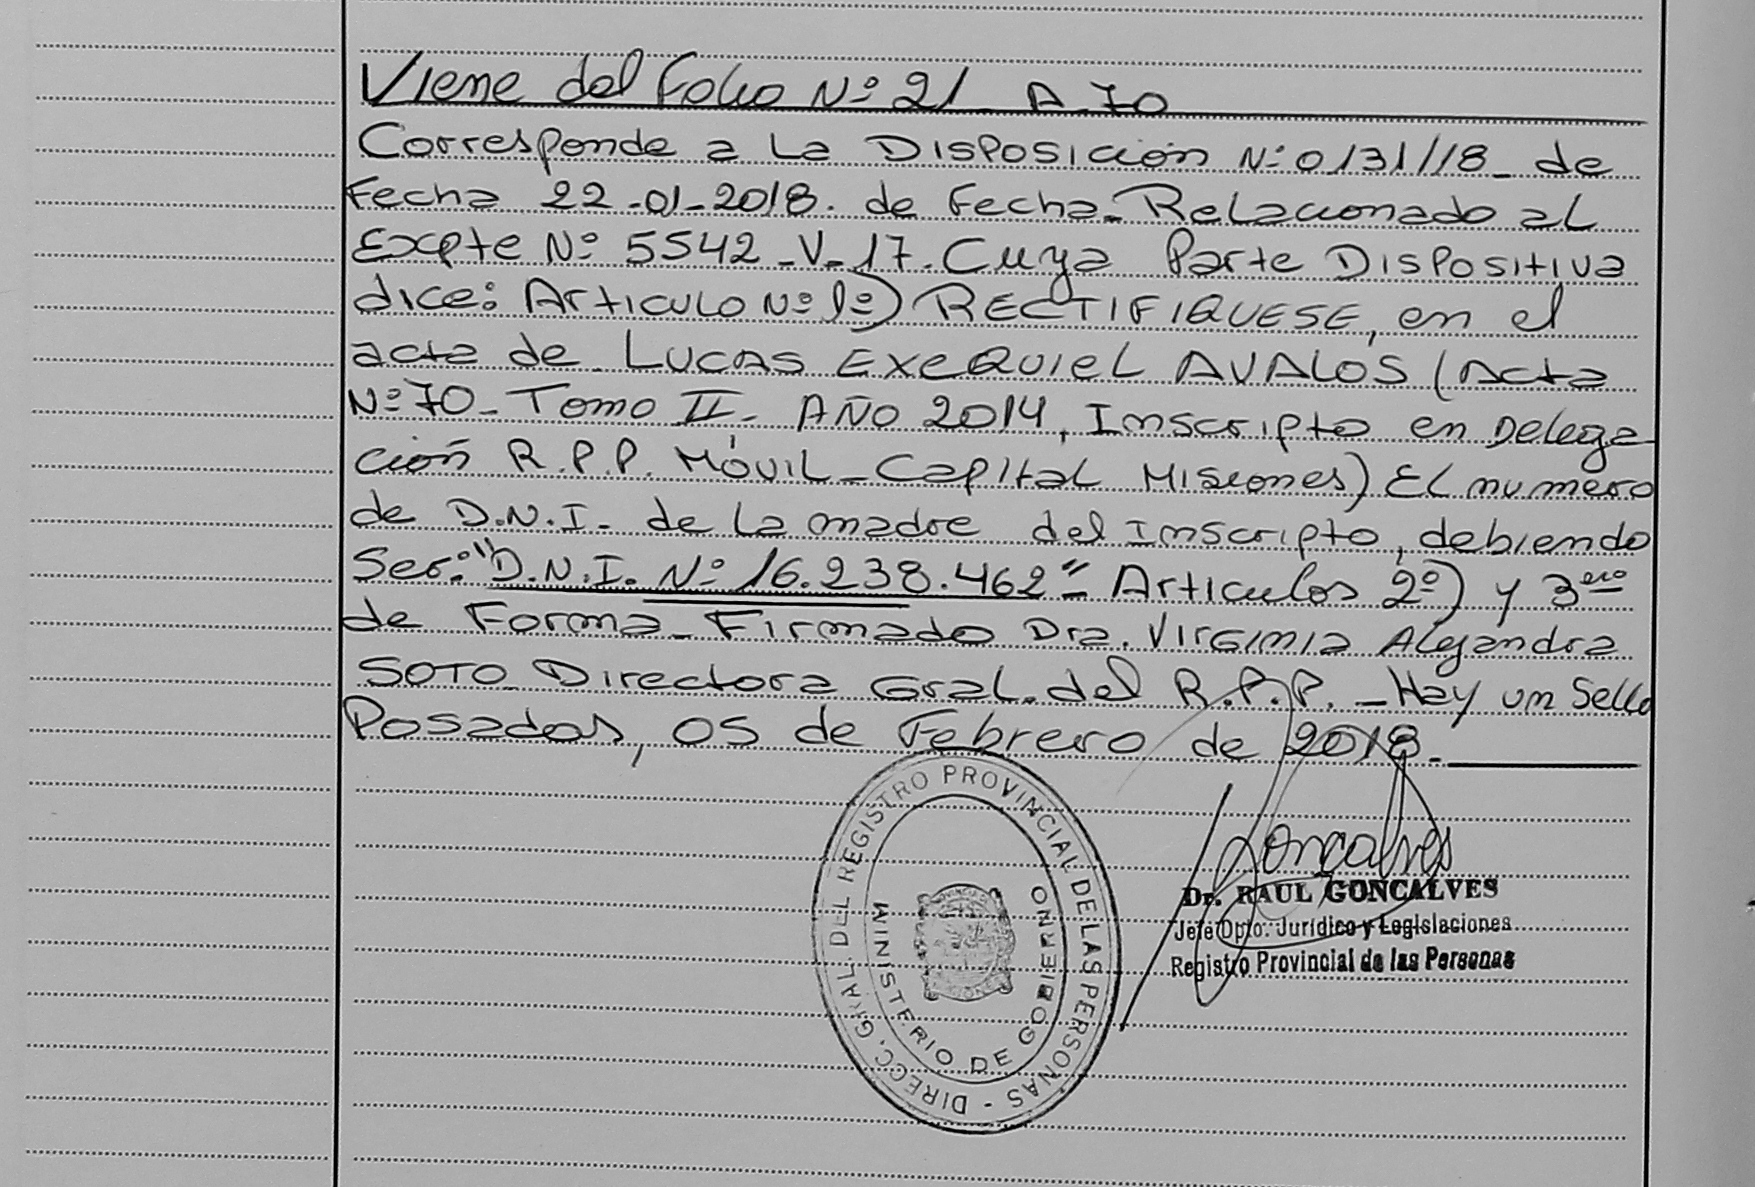 Viene del Folio Nº 21 A-70
Corresponde a La Disposición Nº 0131/18_ de
Fecha 22-01-2018. de Fecha_ Relacionado al
Expte Nº 5542-V-17. Cuya Parte Dispositiva
dice: Articulo Nº 1º) RECTIFIQUESE, en el
acta de LUCAS EXEQUIEL AVALOS (Acta
Nº 70_ Tomo II_ AÑO 2014, Inscripto en Delega
ción R.P.P. Móvil_Capital Misiones) El numero
de D.N.I. de La madre del Inscripto, debiendo
Ser: "D.N.I. Nº 16.238.462" Articulos 2º) y 3ero
de Forma_ Firmado Dra. Virginia Alejandra
SOTO Directora Gral. del R.P.P. _ Hay un Sello
Posadas, 05 de Febrero de 2018.
DIRECC. GRAL. DEL REGISTRO PROVINCIAL DE LAS PERSONAS -
MINISTERIO DE GOBIERNO
Goncalves
Dr. RAUL GONCALVES
Jefe Dpto. Jurídico y Legislaciones
Registro Provincial de las Personas